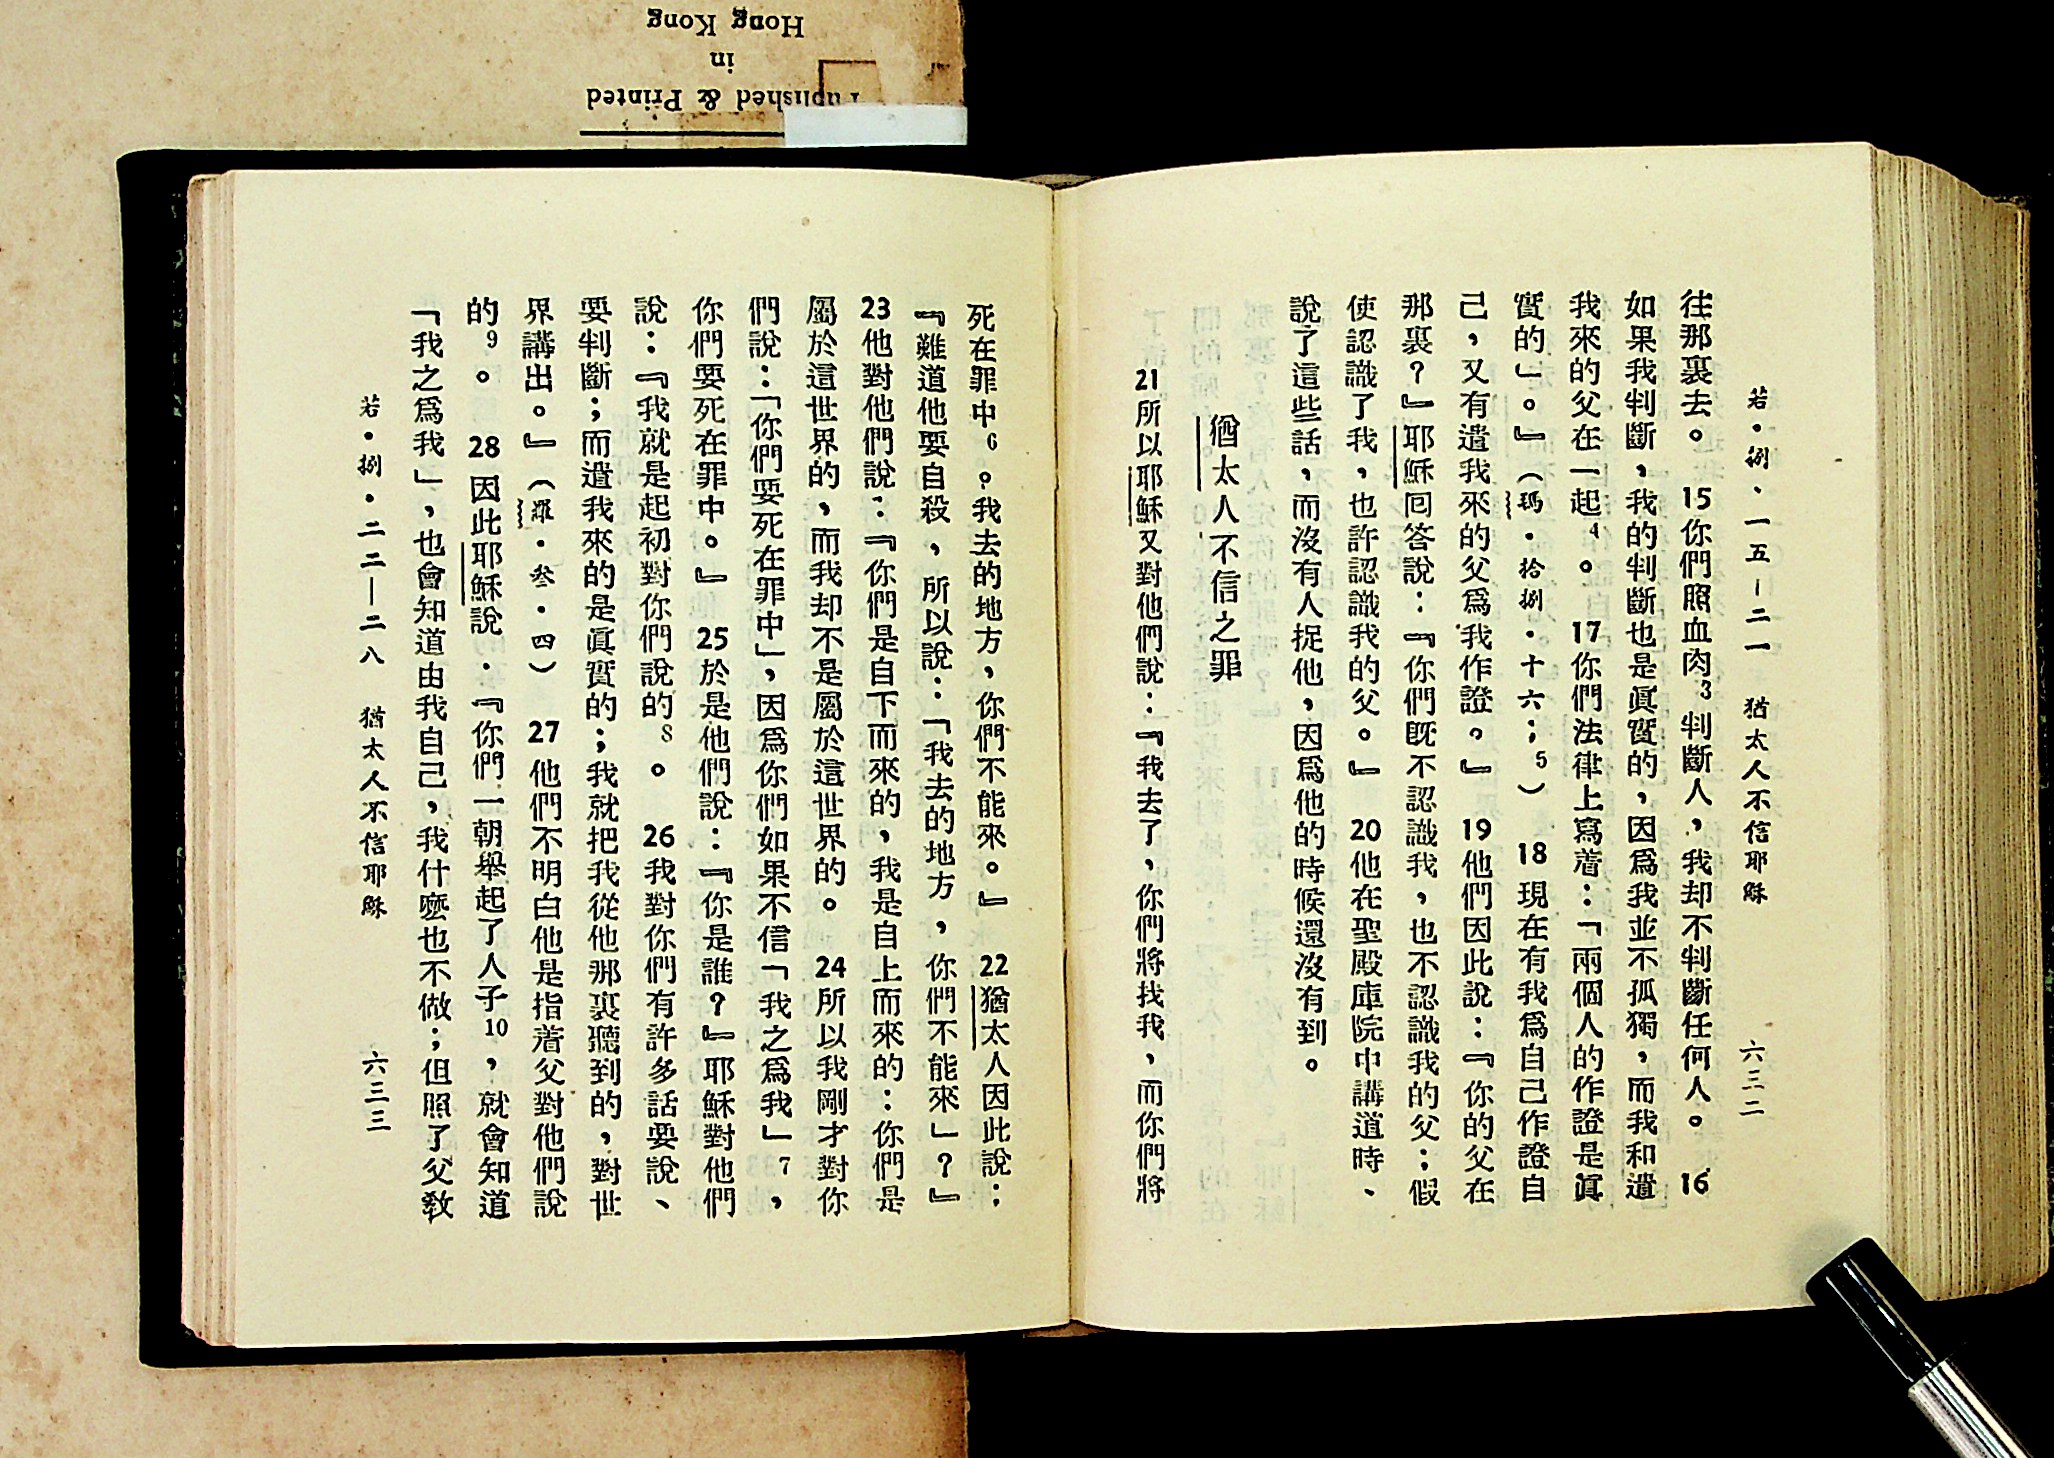 若・捌、一五－二一　猶太人不信耶穌　六三二
往那裏去。　15你們照血肉3判斷人，我却不判斷任何人。　16
如果我判斷，我的判斷也是眞實的，因爲我並不孤獨，而我和遣
我來的父在一起4。　17你們法律上寫着：「兩個人的作證是眞
實的」。』（瑪・拾捌・十六；5）　18現在有我爲自己作證自
己，又有遣我來的父爲我作證。』　19他們因此說：『你的父在
那裏？』耶穌囘答說：『你們旣不認識我，也不認識我的父；假
使認識了我，也許認識我的父。』　20他在聖殿庫院中講道時、
說了這些話，而沒有人捉他，因爲他的時候還沒有到。
猶太人不信之罪
21所以耶穌又對他們說：『我去了，你們將找我，而你們將
死在罪中6。我去的地方，你們不能來。』　22猶太人因此說：
『難道他要自殺，所以說：「我去的地方，你們不能來」？』
23他對他們說：『你們是自下而來的，我是自上而來的：你們是
屬於這世界的，而我却不是屬於這世界的。　24所以我剛才對你
們說：「你們要死在罪中」，因爲你們如果不信「我之爲我」7，
你們要死在罪中。』　25於是他們說：『你是誰？』耶穌對他們
說：『我就是起初對你們說的8。　26我對你們有許多話要說、
要判斷；而遣我來的是眞實的；我就把我從他那裏聽到的，對世
界講出。』（羅・叁・四）　27他們不明白他是指着父對他們說
的9。　28因此耶穌說．『你們一朝舉起了人子10，就會知道
「我之爲我」，也會知道由我自己，我什麼也不做；但照了父敎
若・捌・二二－二八　猶太人不信耶穌　六三三
Published & Printed
in
Hong Kong